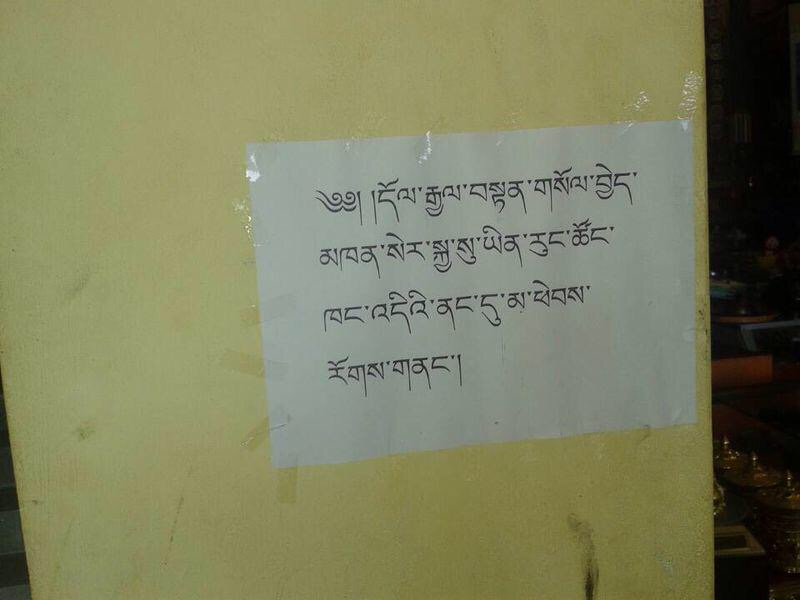 ༄༅། །དོལ་རྒྱལ་བསྟན་གསོལ་བྱེད་
མཁན་སེར་སྐྱ་སུ་ཡིན་རུང་ཚོང་
ཁང་འདིའི་ནང་དུ་མ་ཕེབས་
རོགས་གནང་།